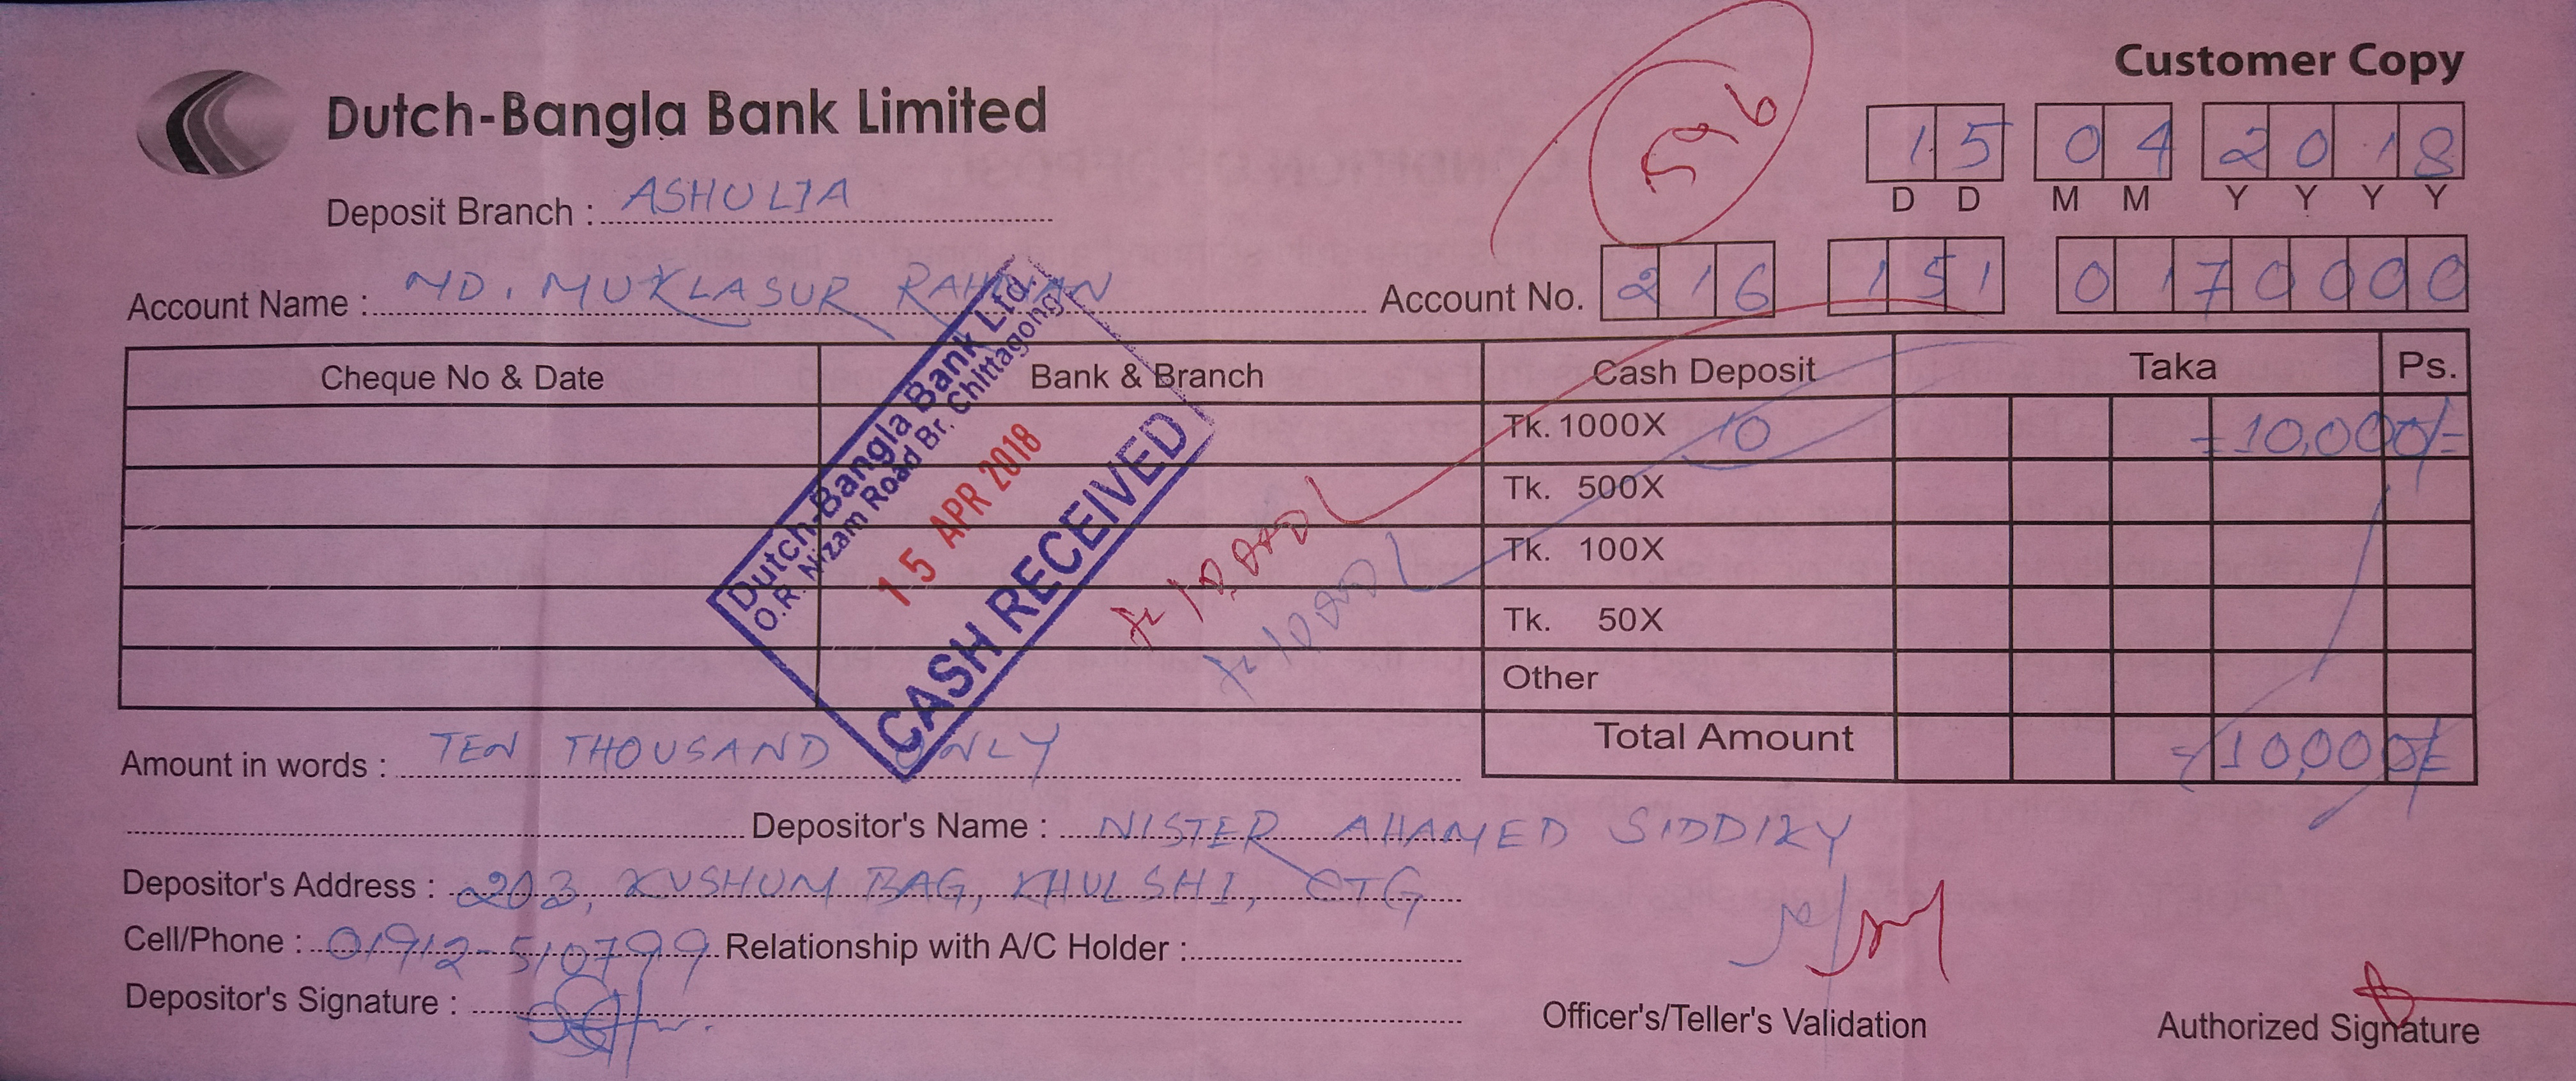 Customer Copy
Dutch-Bangla Bank Limited
596
15 04 2018
D D M M Y Y Y Y
Deposit Branch : ASHULIA
Account Name : MD. MUKLASUR RAHMAN Account No. 216 151 0170000
Cheque No & Date Bank & Branch Cash Deposit Taka Ps.
Tk. 1000X 10 =10,000/=
Tk. 500X
Tk. 100X
Tk. 50X
Other
Total Amount =10,000/=
Dutch-Bangla Bank Ltd.
O.R. Nizam Road Br. Chittagong
15 APR 2018
CASH RECEIVED
Tk 10,000
Tk 10,000
Amount in words : TEN THOUSAND ONLY
Depositor's Name : NISTER AHAMED SIDDIKY
Depositor's Address : 203, KUSHUM BAG, KHULSHI, CTG
Cell/Phone : 01912-510799 Relationship with A/C Holder :
Depositor's Signature :
Officer's/Teller's Validation
Authorized Signature